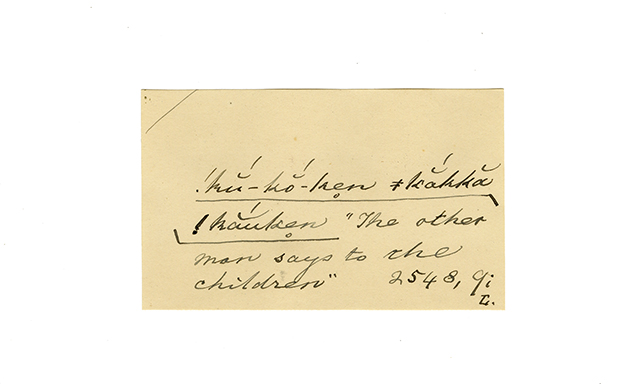 !kŭ́-kŏ́-ken̥ ǂkákkă
!káŭken̥ "The other
man says to the
children" 2548, 9;
L.